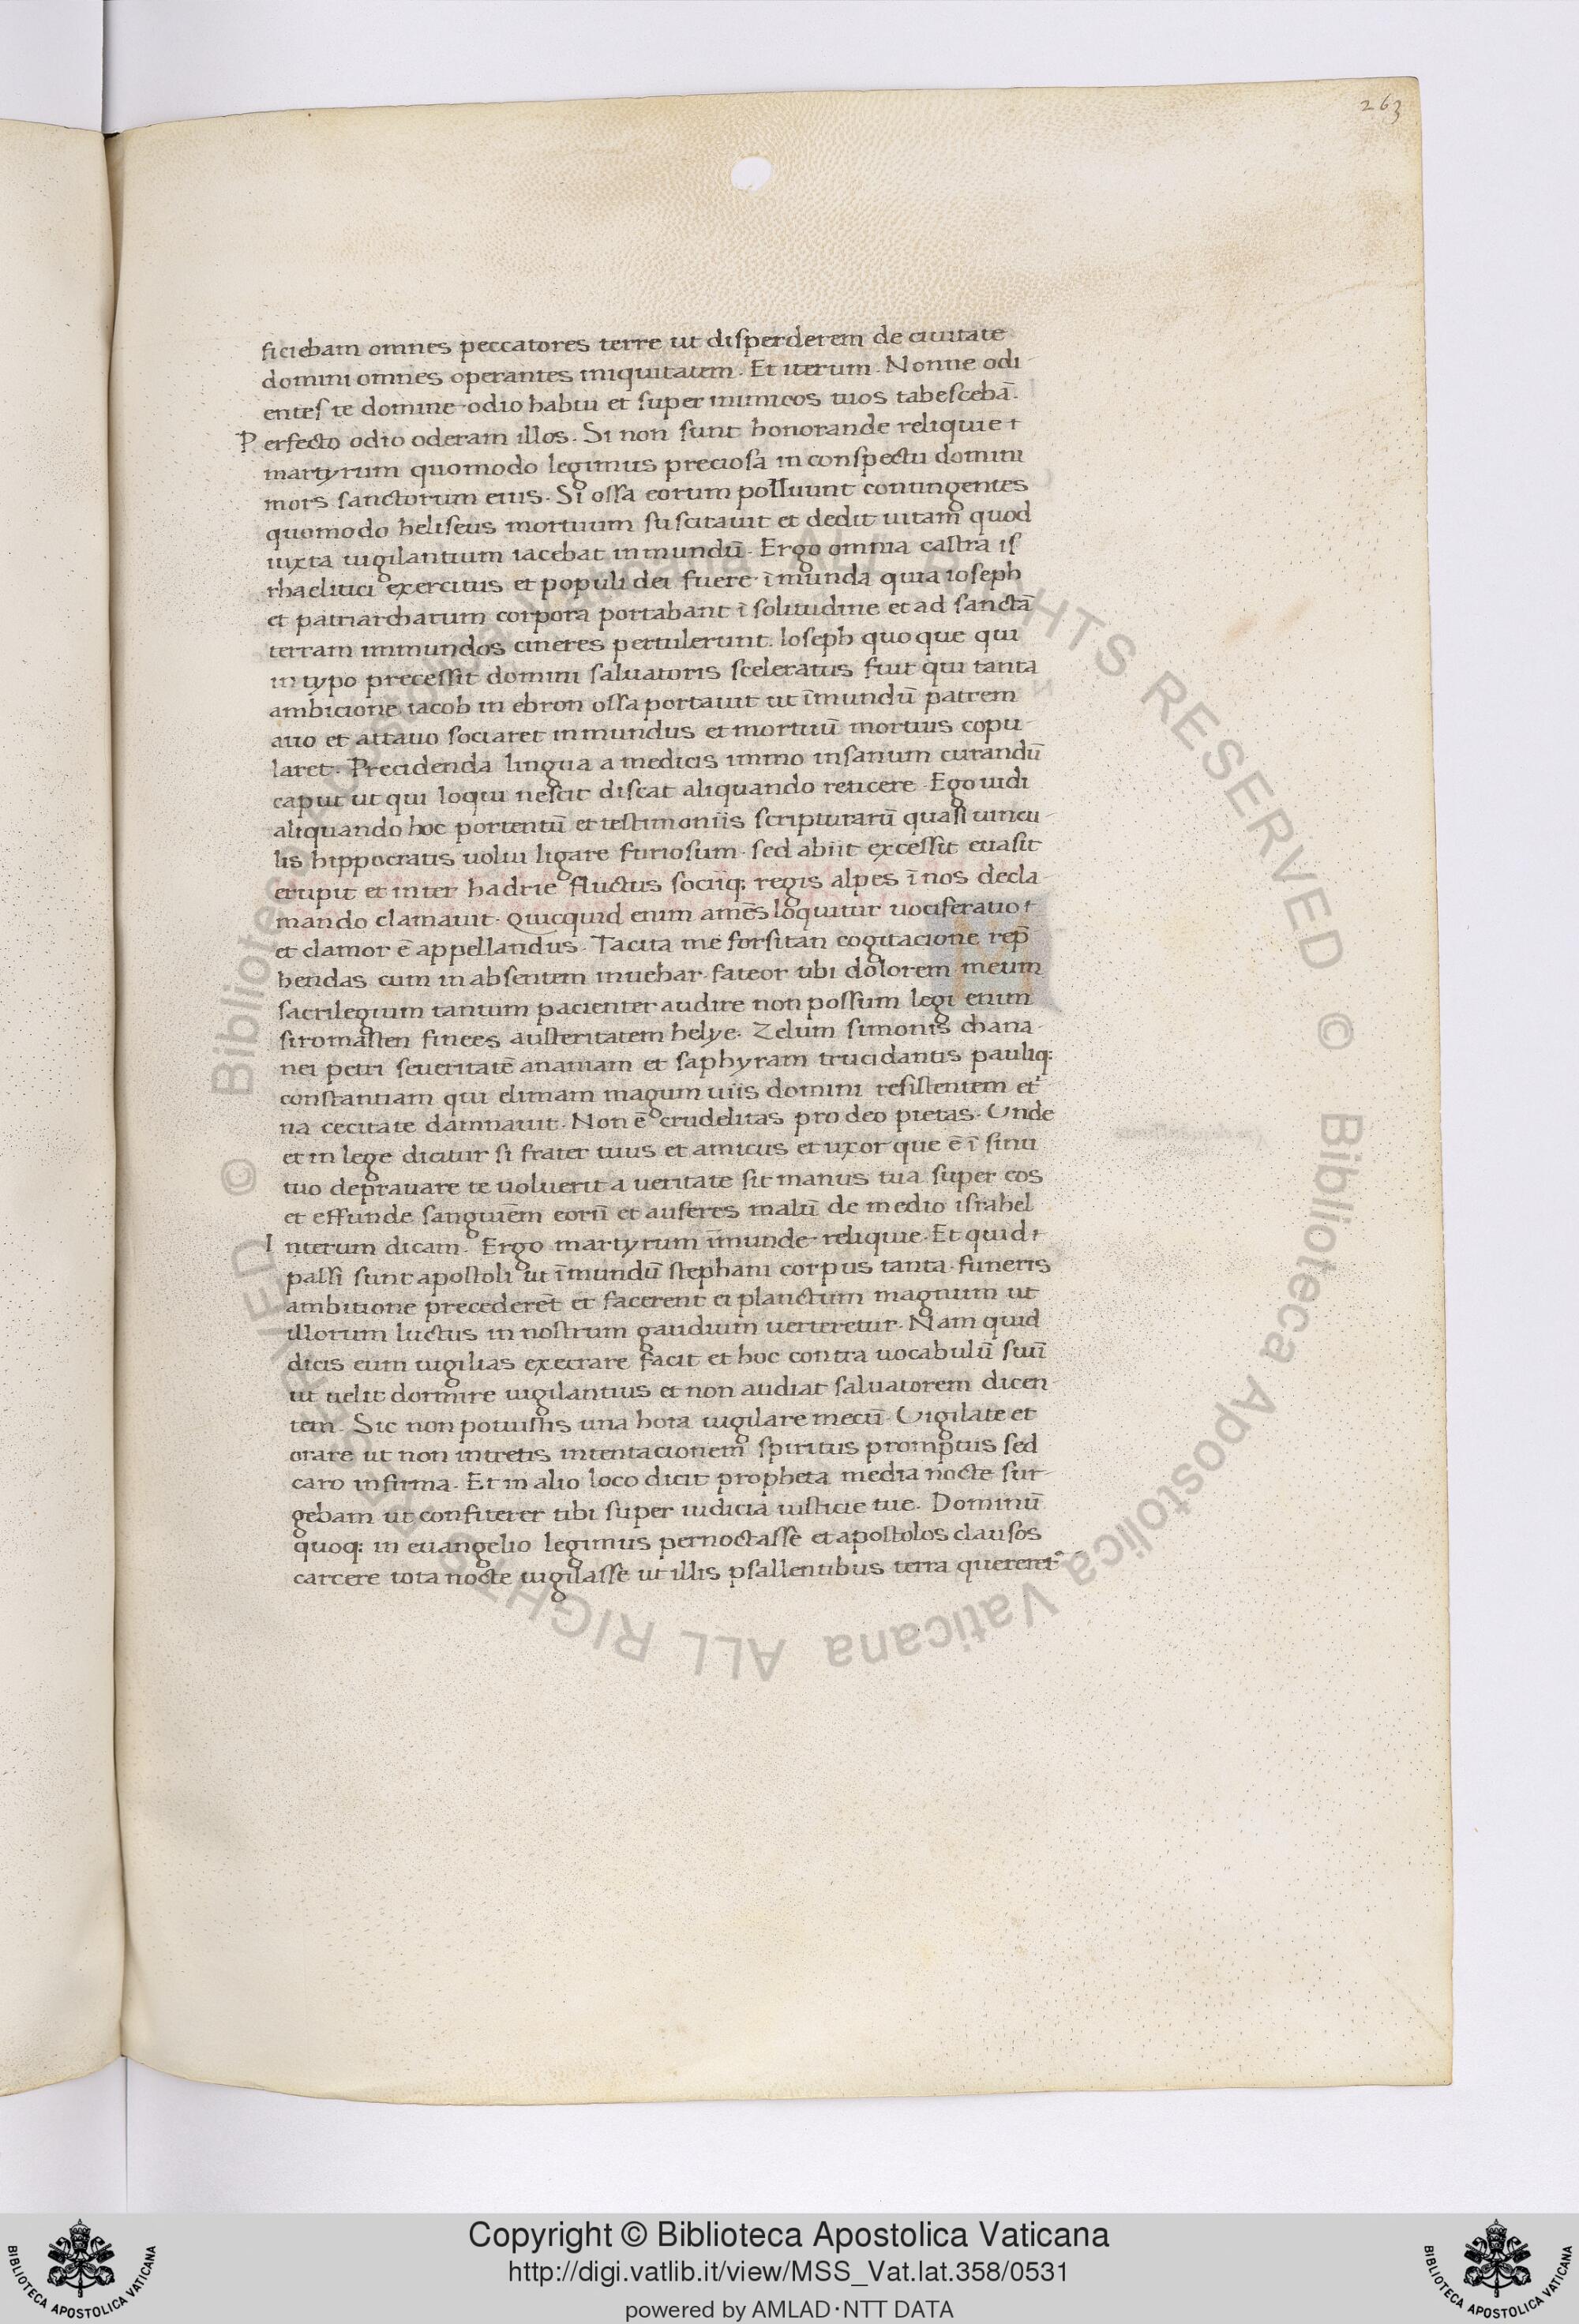 263
ficiebam omnes peccatores terre ut disperderem de ciuitate
domini omnes operantes iniquitatem. Et iterum. Nonne odi
entes te domine odio habui et super inimicos tuos tabescebā.
Perfecto odio oderam illos. Si non sunt honorande reliquie
martyrum quomodo legimus preciosa in conspectu domini
mors sanctorum eius. Si ossa eorum polluunt contingentes
quomodo heliseus mortuum suscitauit et dedit uitam quod
iuxta uigilantium iacebat inmundū. Ergo omnia castra is
rhaelitici exercitus et populi dei fuere īmunda quia ioseph
et patriarcharum corpora portabant ī solitudine et ad sanctā
terram immundos cineres pertulerunt. Ioseph quoque qui
in typo precessit domini saluatoris sceleratus fuit qui tanta
ambicione iacob in ebron ossa portauit ut īmundū patrem
auo et attauo sociaret inmundus et mortuū mortuis copu-
laret. Precidenda lingua a medicis immo insanum curandū
caput ut qui loqui nescit discat aliquando reticere. Ego uidi
aliquando hoc portentū et testimoniis scripturarū quasi uincu-
lis hippocratis uolui ligare furiosum. sed abiit excessit euasit
erupit et inter hadrie fluctus sociiq; regis alpes ī nos decla-
mando clamauit. Quicquid enim amēs loquitur uociferatio
et clamor ē appellandus. Tacita me forsitan cogitacione rep̄
hendas cum in absentem inuehar. fateor tibi dolorem meum
sacrilegium tantum pacienter audire non possum legi enim
siromasten finees austeritatem helye. Zelum simonis chana-
nei petri seueritatē ananiam et saphyram trucidantis pauliq;
constantiam qui elimam magum uiis domini resistentem et
na cecitate damnauit. Non ē crudelitas pro deo pietas. Unde
et in lege dicitur si frater tuus et amicus et uxor que ē ī sinu
tuo deprauare te uoluerit a ueritate sit manus tua super eos
et effunde sanguinem eorū et auferes malū de medio israhel
Interum dicam. Ergo martyrum īmunde reliquie. Et quid
passi sunt apostoli ut īmundū stephani corpus tanta funeris
ambitione precederet et facerent ei planctum magnum ut
illorum luctus in nostrum gaudium uerteretur. Nam quid
dicis eum uigilias execrare facit et hoc contra uocabulū suū
ut uelit dormire uigilantius et non audiat saluatorem dicen-
tem. Sic non potuistis una hora uigilare mecū. Uigilate et
orate ut non intretis intentacionem spiritus promptus sed
caro infirma. Et in alio loco dicit propheta media nocte sur-
gebam ut confiterer tibi super iudicia iusticie tue. Dominū
quoq; in euangelio legimus pernoctasse et apostolos clausos
carcere tota nocte uigilasse ut illis psallentibus terra quereret
© Biblioteca Apostolica Vaticana ALL RIGHTS RESERVED © Biblioteca Apostolica Vaticana ALL RIGHTS RESERVED
Copyright © Biblioteca Apostolica Vaticana
http://digi.vatlib.it/view/MSS_Vat.lat.358/0531
powered by AMLAD·NTT DATA
BIBLIOTECA APOSTOLICA VATICANA
BIBLIOTECA APOSTOLICA VATICANA